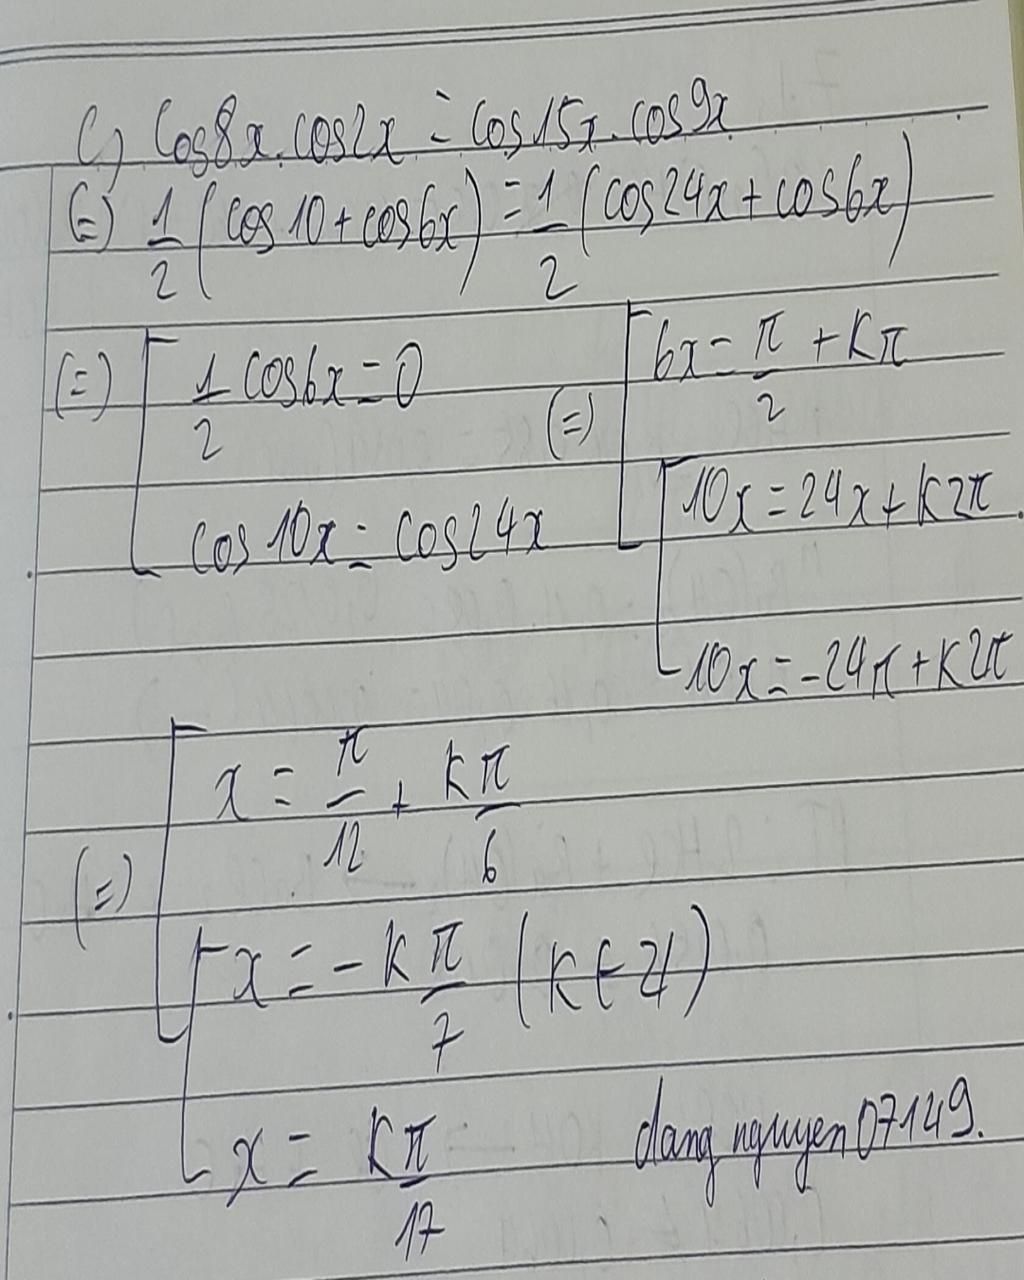 C) Cos8x.cos2x = Cos15x.cos9x
(=) 1/2 (cos10+cos6x) = 1/2 (cos24x+cos6x)
(=) [ 1/2 cos6x=0 (=) [ 6x = π/2 + Kπ
cos10x = cos24x [ 10x = 24x + K2π
10x = -24x + K2π
(=) [ x = π/12 + Kπ/6
[ x = -Kπ/7 (K∈Z)
x = Kπ/17 dang nguyen 07149.